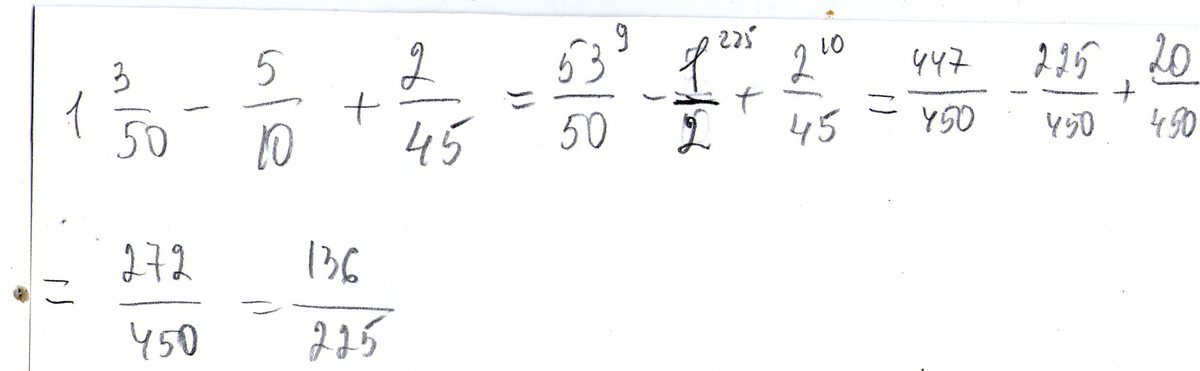 1 3/50 - 5/10 + 2/45 = 53/50 ⁹ - 1/2 ²²⁵ + 2/45 ¹⁰ = 447/450 - 225/450 + 20/450
= 272/450 = 136/225